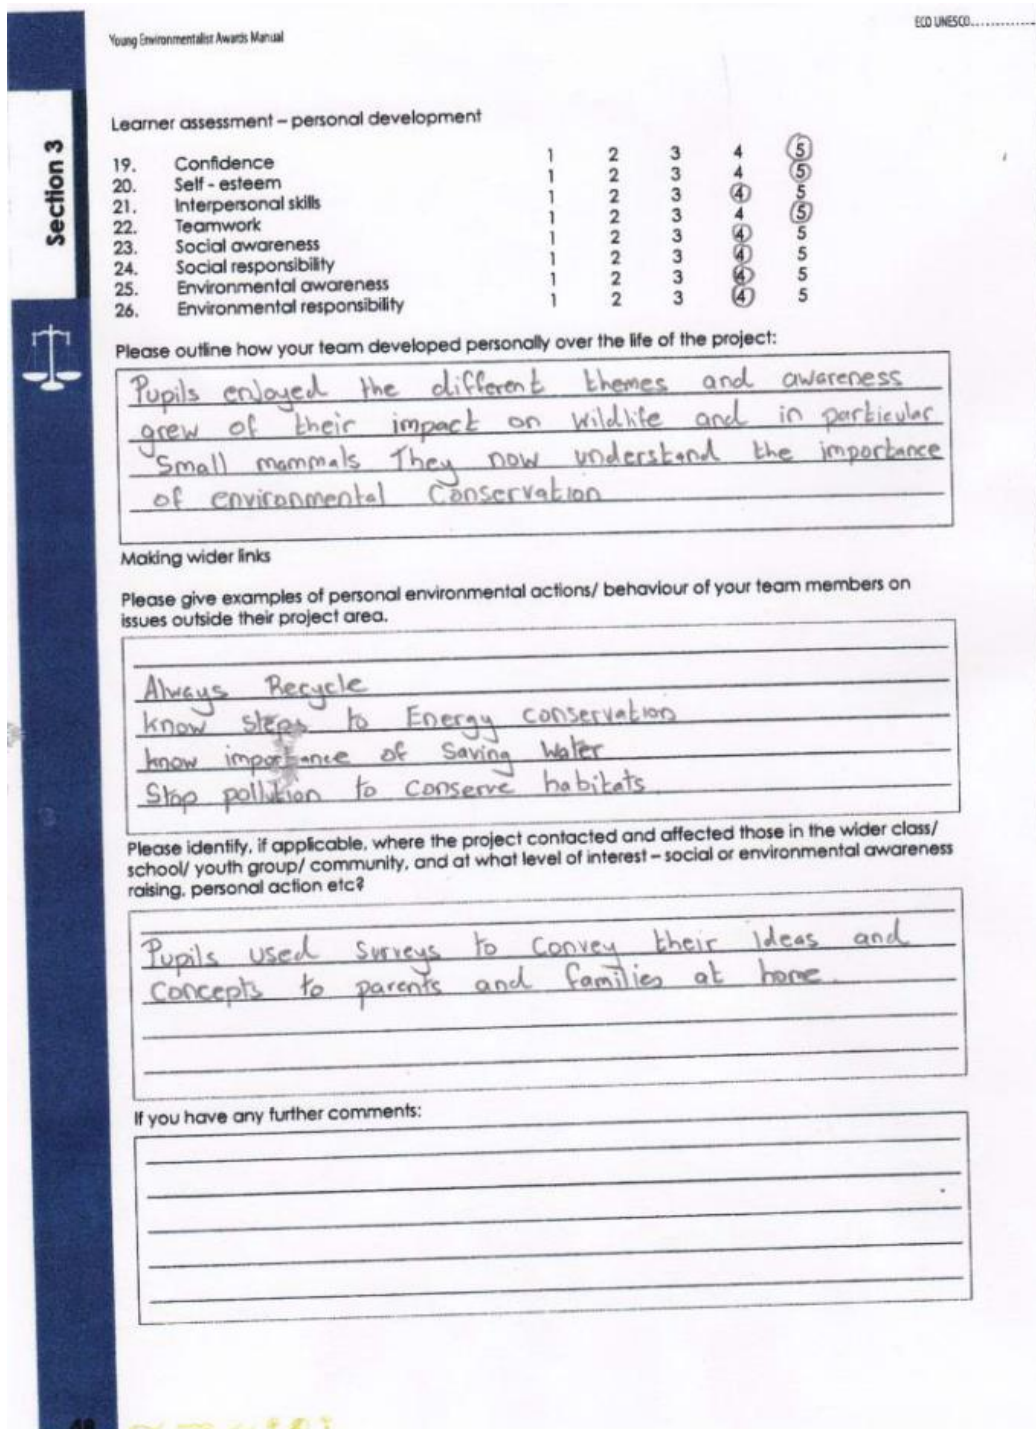 ECO UNESCO.............
Young Environmentalist Awards Manual
Section 3
Learner assessment – personal development
19. Confidence 1 2 3 4 5
20. Self - esteem 1 2 3 4 5
21. Interpersonal skills 1 2 3 4 5
22. Teamwork 1 2 3 4 5
23. Social awareness 1 2 3 4 5
24. Social responsibility 1 2 3 4 5
25. Environmental awareness 1 2 3 4 5
26. Environmental responsibility 1 2 3 4 5
Please outline how your team developed personally over the life of the project:
Pupils enjoyed the different themes and awareness
grew of their impact on wildlife and in particular
Small mammals They now understand the importance
of environmental Conservation
Making wider links
Please give examples of personal environmental actions/ behaviour of your team members on
issues outside their project area.
Always Recycle
know steps to Energy conservation
know importance of Saving Water
Stop pollution to conserve habitats
Please identify, if applicable, where the project contacted and affected those in the wider class/
school/ youth group/ community, and at what level of interest – social or environmental awareness
raising, personal action etc?
Pupils used surveys to convey their ideas and
concepts to parents and families at home.
If you have any further comments:
48